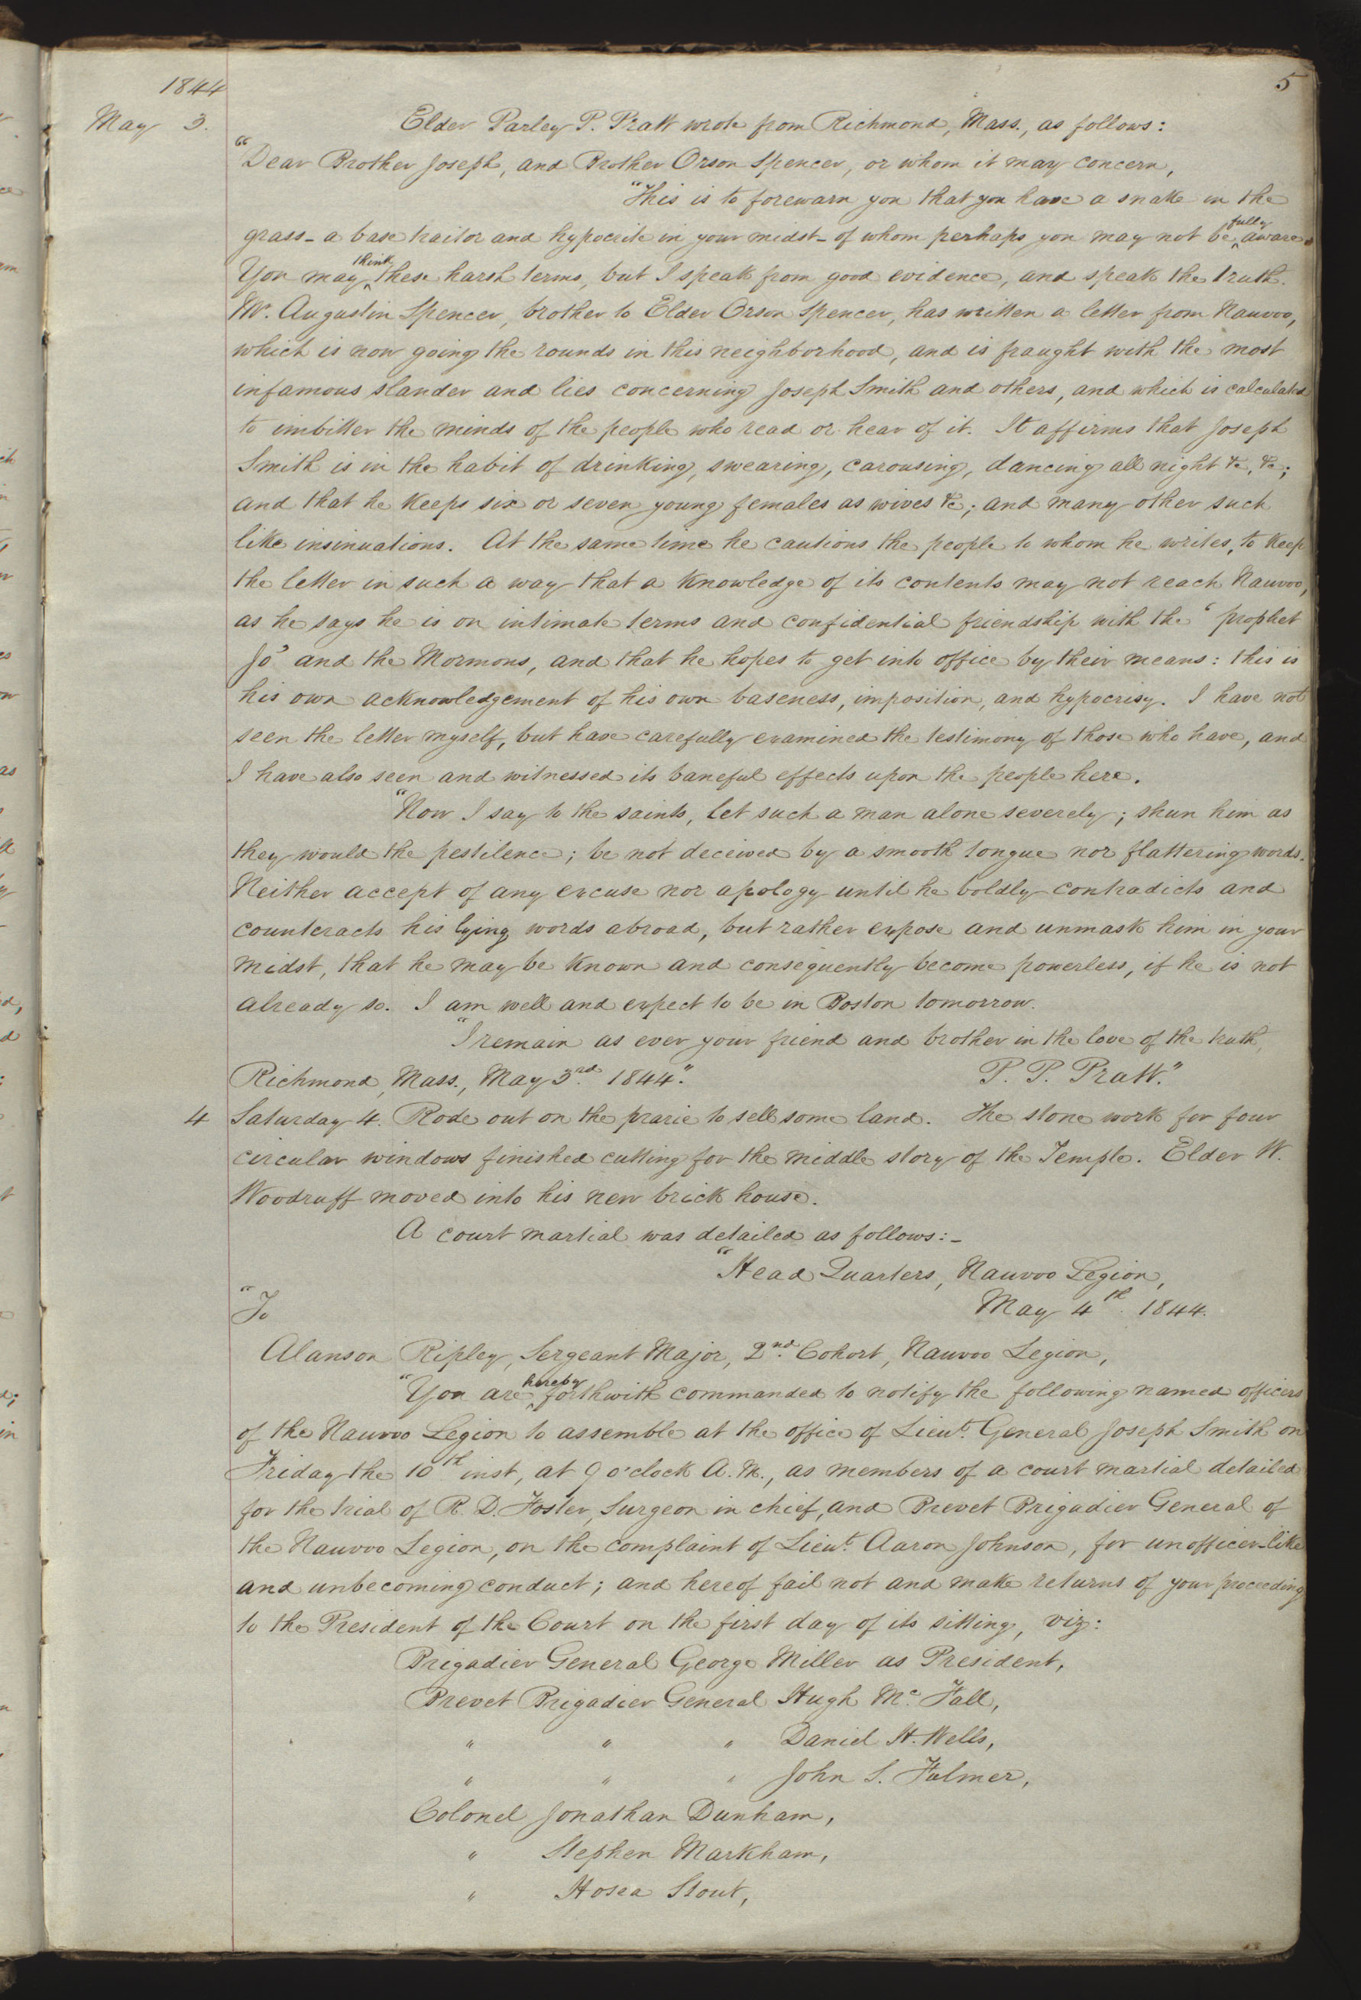 5
1844
May 3. Elder Parley P. Pratt wrote from Richmond, Mass., as follows:
"Dear Brother Joseph, and Brother Orson Spencer, or whom it may concern,
"This is to forewarn you that you have a snake in the
grass – a base traitor and hypocrite in your midst – of whom perhaps you may not be fully aware.
You may think these harsh terms, but I speak from good evidence, and speak the truth.
Mr. Augustin Spencer, brother to Elder Orson Spencer, has written a letter from Nauvoo,
which is now going the rounds in this neighborhood, and is fraught with the most
infamous slander and lies concerning Joseph Smith and others, and which is calculated
to imbitter the minds of the people who read or hear of it. It affirms that Joseph
Smith is in the habit of drinking, swearing, carousing, dancing all night &c, &c;
and that he keeps six or seven young females as wives &c; and many other such
like insinuations. At the same time he cautions the people to whom he writes, to keep
the letter in such a way that a knowledge of its contents may not reach Nauvoo,
as he says he is on intimate terms and confidential friendship with the 'prophet
Jo' and the Mormons, and that he hopes to get into office by their means: this is
his own acknowledgement of his own baseness, imposition, and hypocrisy. I have not
seen the letter myself, but have carefully examined the testimony of those who have, and
I have also seen and witnessed its baneful effects upon the people here.
"Now I say to the saints, let such a man alone severely; shun him as
they would the pestilence; be not deceived by a smooth tongue nor flattering words.
Neither accept of any excuse nor apology until he boldly contradicts and
counteracts his lying words abroad, but rather expose and unmask him in your
midst, that he may be known and consequently become powerless, if he is not
already so. I am well and expect to be in Boston tomorrow.
"I remain as ever your friend and brother in the love of the truth,
Richmond, Mass., May 3rd. 1844." P. P. Pratt."
4 Saturday 4. Rode out on the prarie to sell some land. The stone work for four
circular windows finished cutting for the middle story of the Temple. Elder W.
Woodruff moved into his new brick house.
A court martial was detailed as follows:–
"Head Quarters, Nauvoo Legion,
"To May 4th. 1844.
Alanson Ripley, Sergeant Major, 2nd. Cohort, Nauvoo Legion,
"You are hereby forthwith commanded to notify the following named officers
of the Nauvoo Legion to assemble at the office of Lieut. General Joseph Smith on
Friday the 10th inst, at 9 o'clock A. M., as members of a court martial detailed
for the trial of R. D. Foster, Surgeon in chief, and Brevet Brigadier General of
the Nauvoo Legion, on the complaint of Lieut. Aaron Johnson, for unofficer-like
and unbecoming conduct; and hereof fail not and make returns of your proceeding
to the President of the Court on the first day of its sitting, viz:
Brigadier General George Miller as President,
Brevet Brigadier General Hugh Mc. Fall,
" " " Daniel H. Wells,
" " " John S. Fulmer,
Colonel Jonathan Dunham,
" Stephen Markham,
" Hosea Stout,